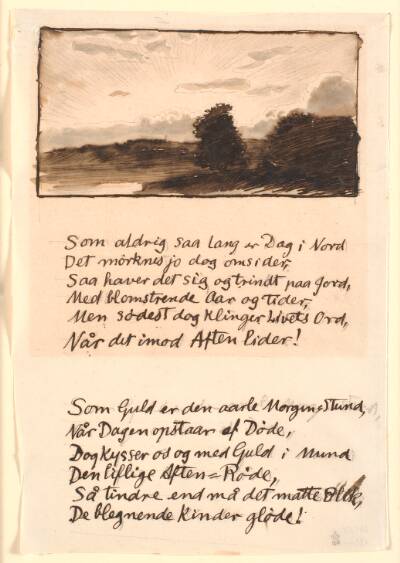 Som aldrig saa lang er Dag i Nord
Det mörknes jo dog omsider,
Saa haver det sig og trindt paa Jord,
Med blomstrende Aar og Tider,
Men södest dog klinger Livets Ord,
Når det imod Aften lider!
Som Guld er den aarle Morgenstund,
Når Dagen opstaar af Døde,
Dog kysser os og med Guld i Mund
Den liflige Aften=Røde,
Så tindre end må det matte
De blegnende Kinder gløde!